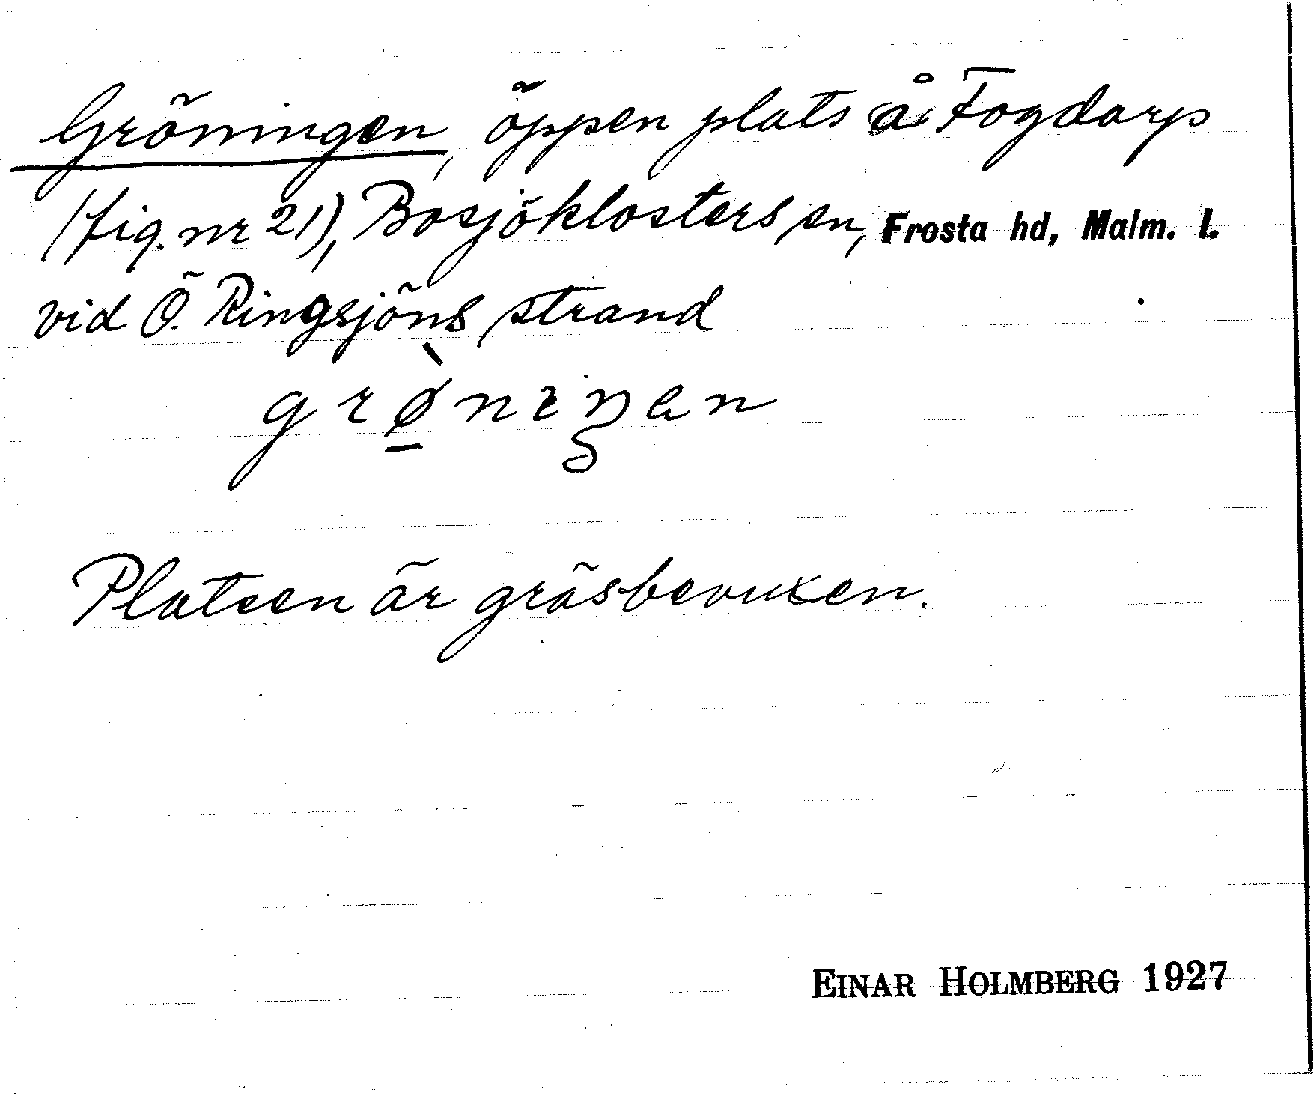 Gröningen, öppen plats å Fogdarp
(fig. nr 21), Bosjöklosters sn, Frosta hd, Malm. l.
vid Ö. Ringsjöns strand
grø̀nɪŋən
Platsen är gräsbevuxen.
EINAR HOLMBERG 1927